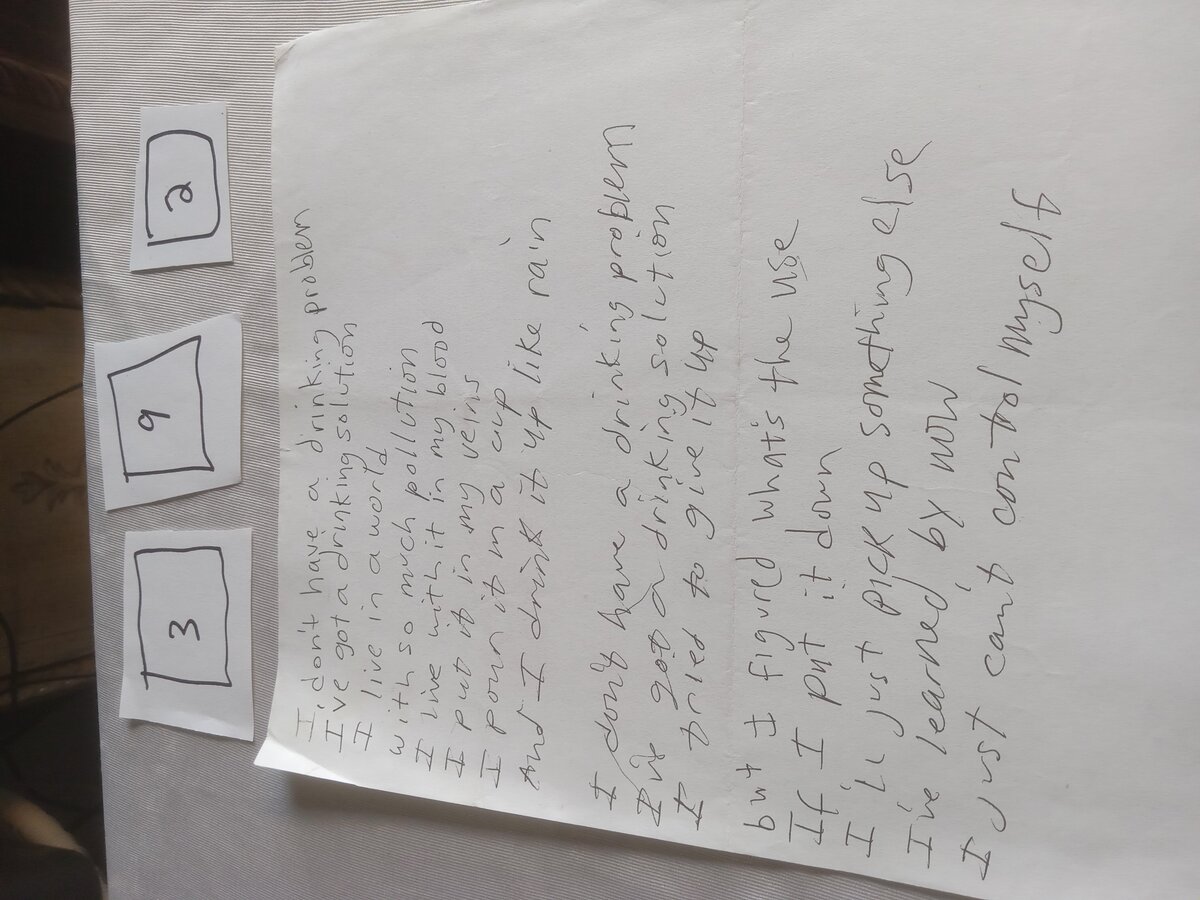 3
9
2
I don't have a drinking problem
I've got a drinking solution
I live in a world
with so much pollution
I live with it in my blood
I put it in my veins
I pour it in a cup
And I drink it up like rain
I don't have a drinking problem
I've got a drinking solution
I tried to give it up
but I figured what's the use
If I put it down
I'll just pick up something else
I've learned by now
I just can't control myself